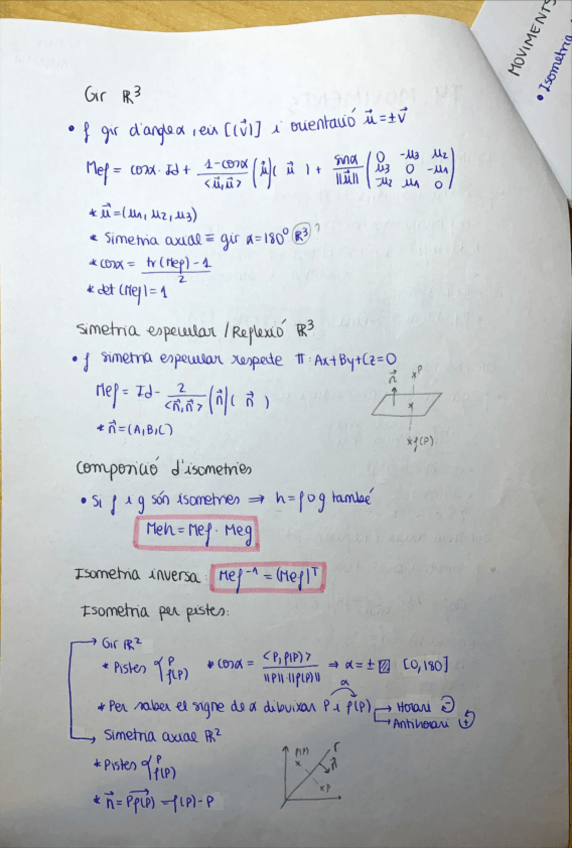 MOVIMENTS
• Isometria
Gir ℝ³
• f gir d'angle α, eix [(v⃗)] i orientació u⃗ = ±v⃗
Mef = cosα · Id + (1-cosα)/<u⃗,u⃗> (u⃗)( u⃗ ) + sinα/||u⃗|| ( 0 -u3 u2 / u3 0 -u1 / -u2 u1 0 )
* u⃗ = (u1, u2, u3)
* Simetria axial ≡ gir α=180° ℝ³ ?
* cosα = (tr(Mef) - 1)/2
* det(Mef) = 1
Simetria especular / Reflexió ℝ³
• f simetria especular respecte π: Ax+By+Cz=0
Mef = Id - 2/<n⃗,n⃗> (n⃗)( n⃗ )
* n⃗ = (A,B,C)
n⃗ xP
x
xf(P)
Composició d'isometries
• Si f i g són isometries ⇒ h = f o g també
Meh = Mef · Meg
Isometria inversa: Mef⁻¹ = (Mef)ᵀ
Isometria per pistes:
→ Gir ℝ²
* Pistes { P f(P) * cosα = <P, f(P)>/(||P|| · ||f(P)||) ⇒ α = ± [0,180]
α
* Per saber el signe de α dibuixar P i f(P) → Horari ⊖
→ Antihorari ⊕
→ Simetria axial ℝ²
* Pistes { P f(P)
* n⃗ = Pf(P) = f(P) - P
f(P) r
x n⃗
xP